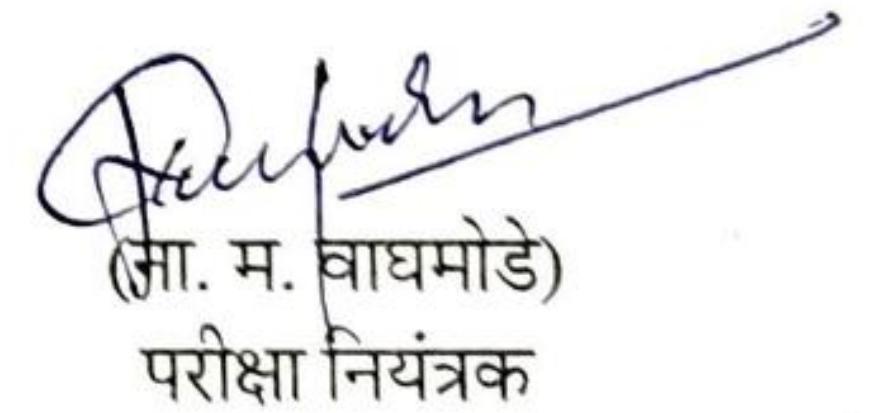 (मा. म. वाघमोडे)
परीक्षा नियंत्रक